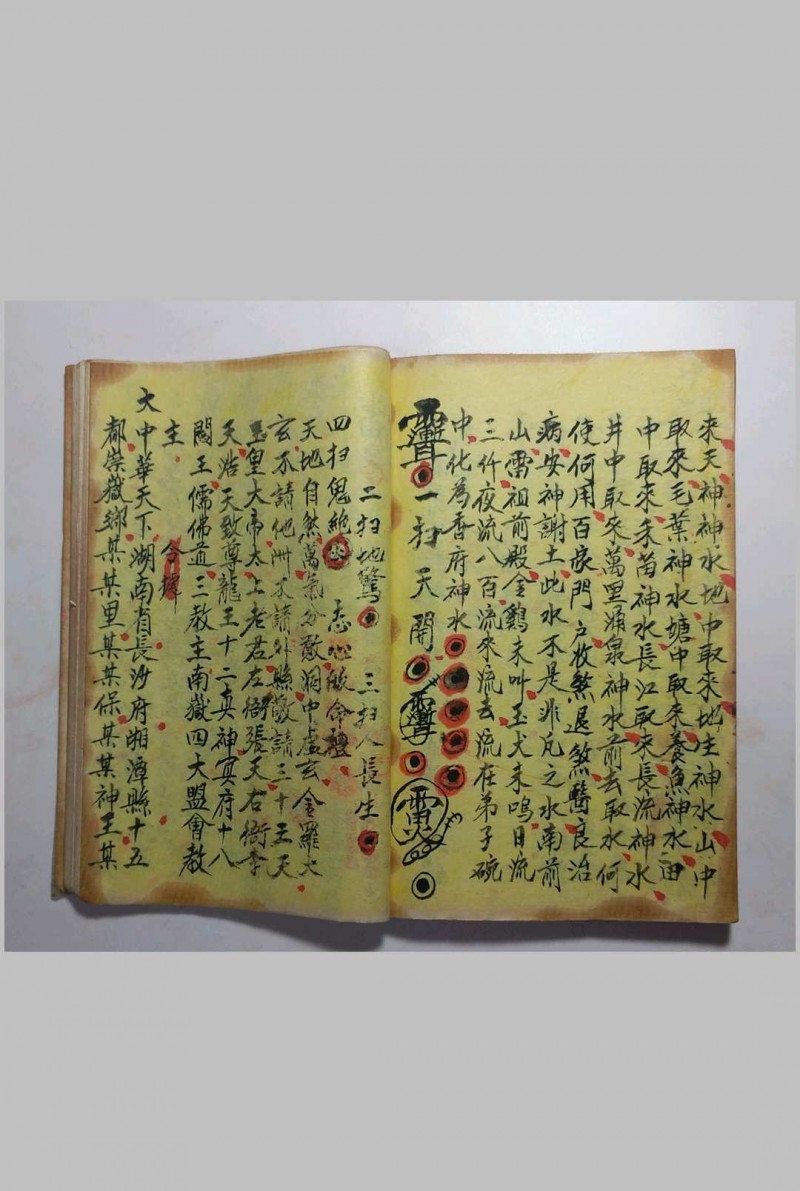 來天神神水地中取來地生神水山中
取來毛葉神水塘中取來養魚神水田
中取來禾苗神水長江取來長流神水
井中取來萬里涌泉神水前去取水何
使何用百家門戶收煞退煞醫良治
病安神謝土此水不是非凡之水南前
山雷祖前殿金鷄未叫玉犬未鳴日流
三仟夜流八百流來流去流在弟子碗
中化為香府神水
一扫天開
二扫地驚 三扫人長生
四扫鬼絶 志心皈命禮
天地自然萬氣分散洞中虚玄金羅大
玄不請他州不請外縣敬請三十三天
玉皇大帝太上老君左衙張天右衙李
天浩天致尊龍王十二真神冥府十八
閻王儒佛道三教主南嶽四大盟會教
主
大中華天下湖南省長沙府湘潭縣十五
都崇嶽鄉某某里某某保某某神王某